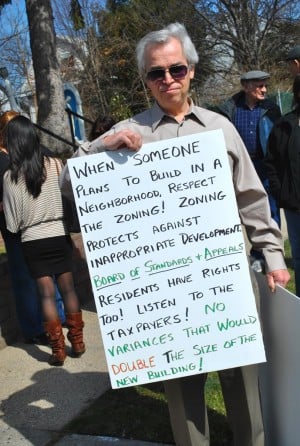 WHEN SOMEONE
PLANS TO BUILD IN A
NEIGHBORHOOD, RESPECT
THE ZONING! ZONING
PROTECTS AGAINST
INAPPROPRIATE DEVELOPMENT.
BOARD OF STANDARDS + APPEALS
RESIDENTS HAVE RIGHTS
TOO! LISTEN TO THE
TAXPAYERS! NO
VARIANCES THAT WOULD
DOUBLE THE SIZE OF THE
NEW BUILDING!